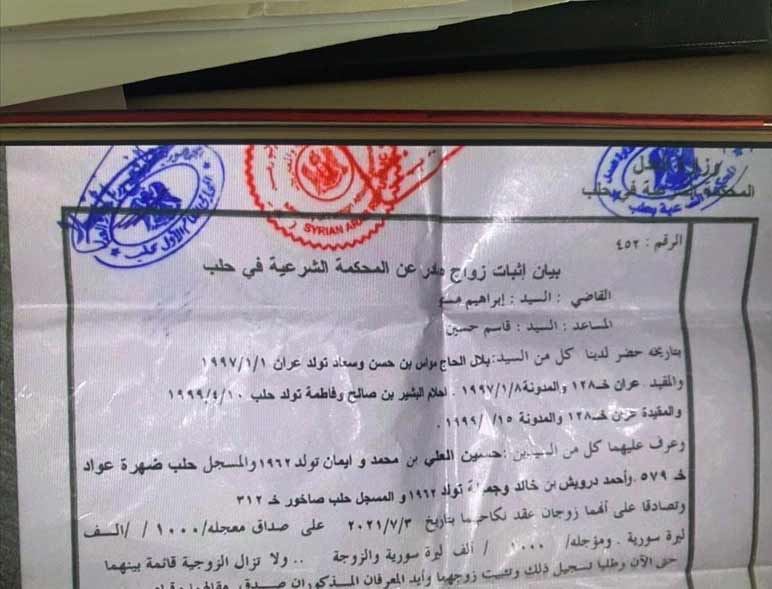 وزارة العدل
المحكمة الشرعية في حلب
SYRIAN ARAB
الرقم : ٤٥٢
بيان إثبات زواج صدر عن المحكمة الشرعية في حلب
القاضي : السيد : إبراهيم
المساعد : السيد : قاسم حسين
بتاريخه حضر لدينا كل من السيد: بلال الحاج مواس بن حسن وسعاد تولد عران ١٩٩٧/١/١
والمقيد عران خـ١٢٨ والمدونة ١٩٩٧/١/٨ . احلام البشير بن صالح وفاطمة تولد حلب ١٩٩٩/٤/١٠
والمقيدة عران خـ١٢٨ والمدونة ١٥/ /١٩٩٩ .
وعرف عليهما كل من السيدين : حسين العلي بن محمد و ايمان تولد ١٩٦٢ والمسجل حلب ضهرة عواد
خـ ٥٧٩ .وأحمد درويش بن خالد تولد ١٩٦٢ و المسجل حلب صاخور خـ ٣١٢
وتصادقا على أنهما زوجان عقد نكاحهما بتاريخ ٢٠٢١/٧/٣ على صداق معجله/ ١٠٠٠ / /الـف
ليرة سورية . ومؤجله/ ١٠٠٠ / ألف ليرة سورية والزوجة .. ولا تزال الزوجية قائمة بينهما
حتى الآن وطلبا تسجيل ذلك وتثبيت زوجهما وأيد المعرفان المذكوران صدق